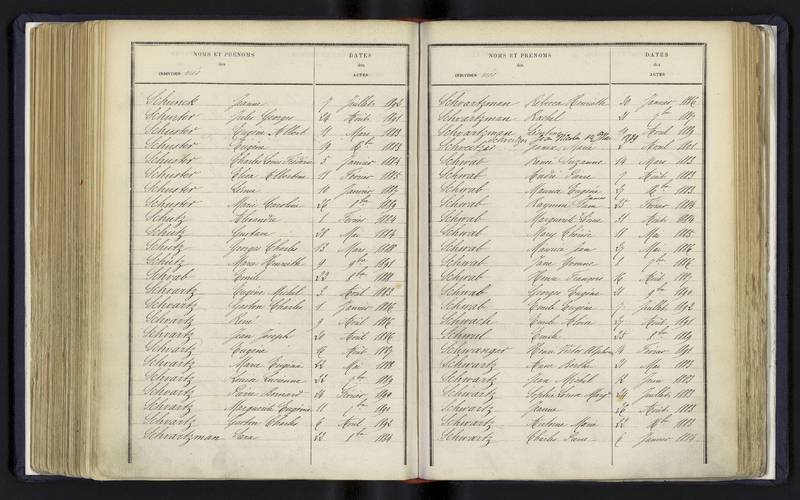 NOMS ET PRÉNOMS
des
INDIVIDUS nés
DATES
des
ACTES
Schunck Jeanne 7 Juillet 1892
Schuster Jules Georges 24 Août 1891
Schuster Eugène Albert 11 Mars 1883
Schuster Eugène 19 1883
Schuster Charles Louis 5 Janvier 1884
Schuster Elisa Albertine 11 Février 1885
Schuster 10 Janvier 1887
Schuster Marie Caroline 26 1889
Schutz Alexandre 1 Février 1884
Schutz Gustave 28 Mai 1884
Schutz Georges Charles 13 Mars 1888
Schutz Marie Henriette 9 9bre 1891
Schvab Emile 23 1888
Schvartz Eugène Michel 3 Avril 1883
Schvartz Gaston Charles 1 Janvier 1886
Schvartz René 9 Avril 1886
Schvartz Jean Joseph 20 Août 1886
Schvartz Eugène 16 Août 1887
Schvartz Marie Eugénie 22 Mai 1888
Schvartz Louise 22 1889
Schvartz Pierre Bernard 24 Février 1890
Schvartz Marguerite Eugénie 11 7bre 1891
Schvartz Gaston Charles 6 Avril 1892
Schvartzman Sara 22 1884
NOMS ET PRÉNOMS
des
INDIVIDUS nés
DATES
des
ACTES
Schvartzman Rebecca Henriette 20 Janvier 1886
Schvartzman Rachel 21 7bre 1887
Schvartzman 11 Avril 1889
Schweitzer Marie Avril 1891
Schwab Renée Suzanne 14 Mars 1883
Schwab André Pierre 9 Août 1883
Schwab Maurice Eugène 27 1883
Schwab Raymond 25 Février 1884
Schwab Marguerite 31 Août 1884
Schwab Mary Thérèse 11 Mai 1885
Schwab Maurice Jean 27 Mai 1886
Schwab Jane Yvonne 1 7bre 1886
Schwab Henri François 16 Août 1887
Schwab Georges Eugène 21 1890
Schwab Emile Eugène 7 Juillet 1892
Schwach Emile Aloïse 27 Août 1891
Schwal Emile 25 1889
Schwanger Henri Victor Alphonse 14 Février 1891
Schwartz Anne Berthe 31 Mai 1883
Schwartz Jean Michel 12 Juin 1883
Schwartz Sophie Louise Marg. 24 Juillet 1883
Schwartz Jeanne 26 Août 1883
Schwartz Antoine Marie 22 1883
Schwartz Charles Pierre 6 Janvier 1884